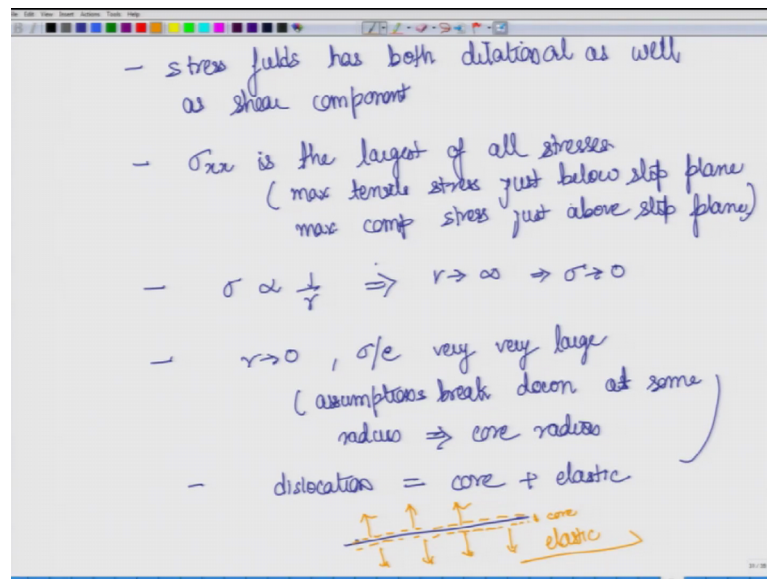 File Edit View Insert Actions Tools Help
- stress fields has both dilational as well
as shear component
- σxx is the largest of all stresses
( max tensile stress just below slip plane
max comp stress just above slip plane)
- σ ∝ 1/r ⇒ r→∞ ⇒ σ→0
- r→0, σ/e very very large
( assumptions break down at some
radius ⇒ core radius
- dislocation = core + elastic
core
elastic